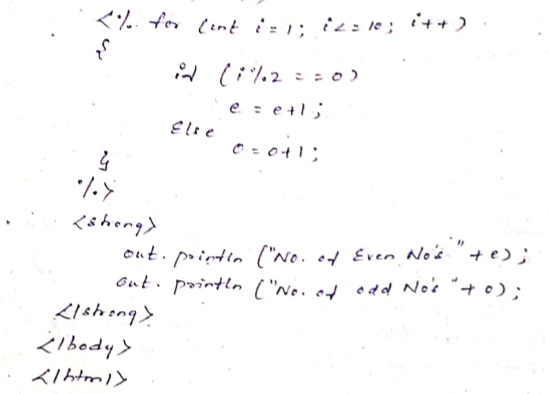 <% for (int i = 1; i <= 10; i++)
{
if (i%2 == 0)
e = e+1;
Else
o = o+1;
}
%>
<strong>
out.println ("No. of Even No's "+e);
out.println ("No. of odd No's "+o);
</strong>
</body>
</html>